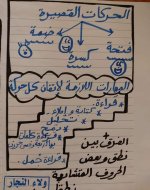 الحركات القصيرة
فتحة
كسرة
ضمة
المهارات اللازمة لإتقان كل حركة
قراءة
كتابة وإملاء
تحليل
قراءة جمل
الفرق بين
نطق وبعض
الحروف المتشابهة
نطقا
ولاء النجار